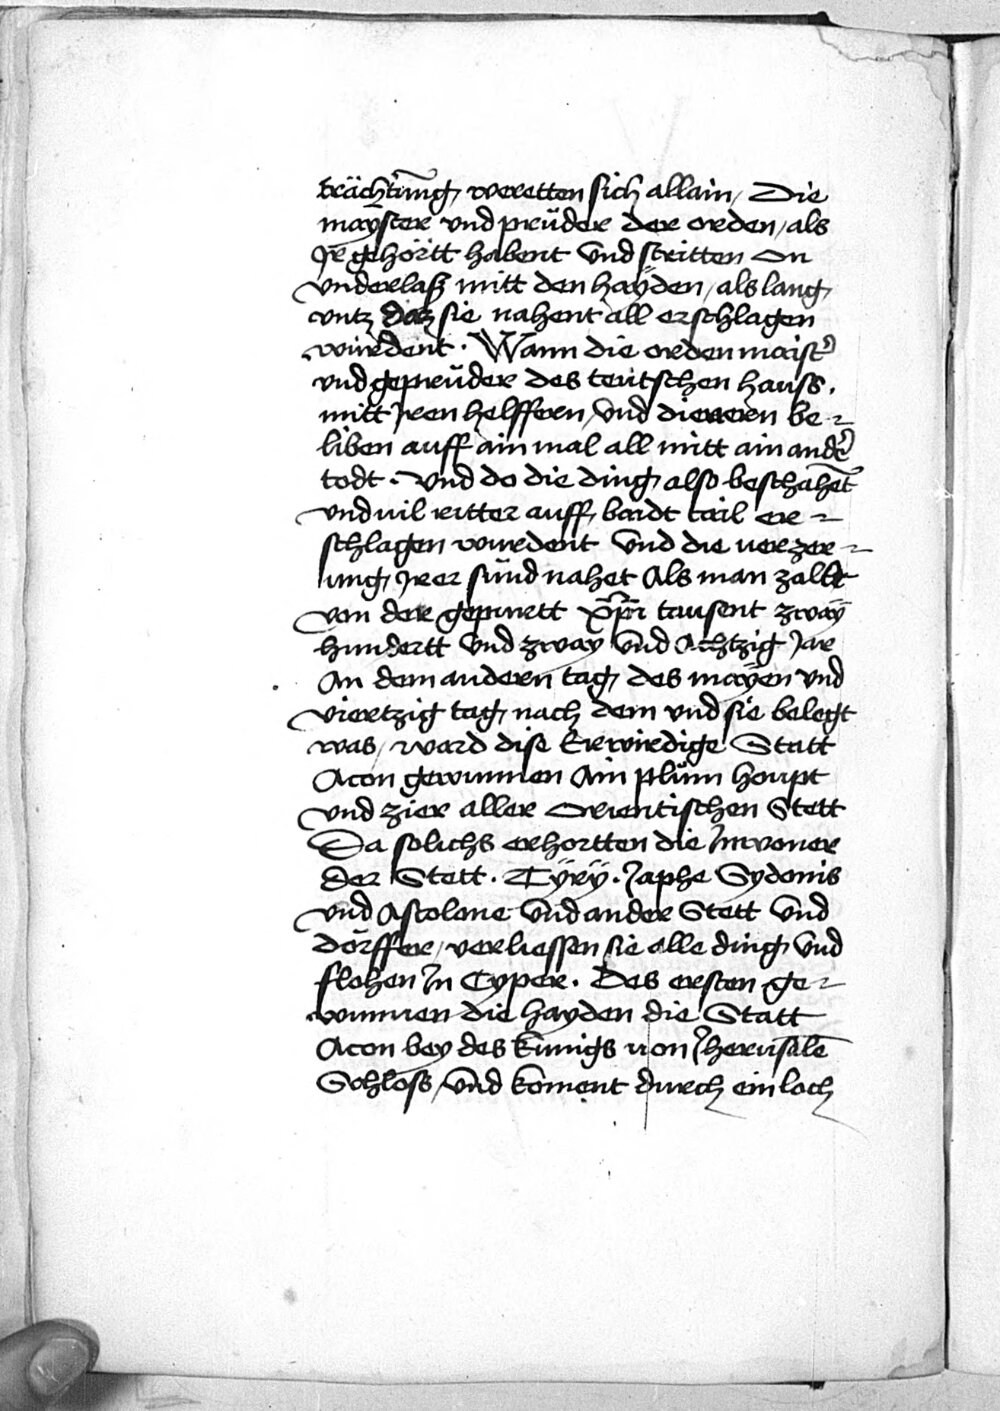 trächtung, weretten sich allain, Die
mayster vnd prüder der orden, als
Jr gehörtt habent Vnd stritten On
vnderlasz mitt den hayden, als lang,
vntz daz sie nahent all erschlagen
wurdent. Wann die orden maist᷑
vnd geprüder des teutschen hauss.
mitt Jren helffern, vnd dienern be-
liben auff ain mal all mitt ain and᷑
todt. Vnd do die ding, also beschahēt
vnd vil ritter auff, baidt tail er-
schlagen wurdent Vnd die verzer-
ung, Jrer sünd nahet Als man zaldt
von der gepurtt xp̄i tausent zway
hundertt Vnd zway Vnd Achtzig Jar
An dem andern tag, des mayen Vnd
viertzig tag, nach dem vnd sie belegt
was, ward dise Erwirdige Statt
Acon gewunnen Ain plüm houpt
vnd zier aller Orientischen Stett
Da solichs erhortten die Jnwoner
der Stett. Tÿrÿ. Japhe Sydonis
vnd Ascolone Vnd ander Stett Vnd
dörffer, verliessen sie alle ding, Vnd
flohen Jn Cyper. Des ersten ge-
wunnen die hayden die Statt
Acon bey des künigs von Jherusalē
Schloss, vnd koment durch ein loch